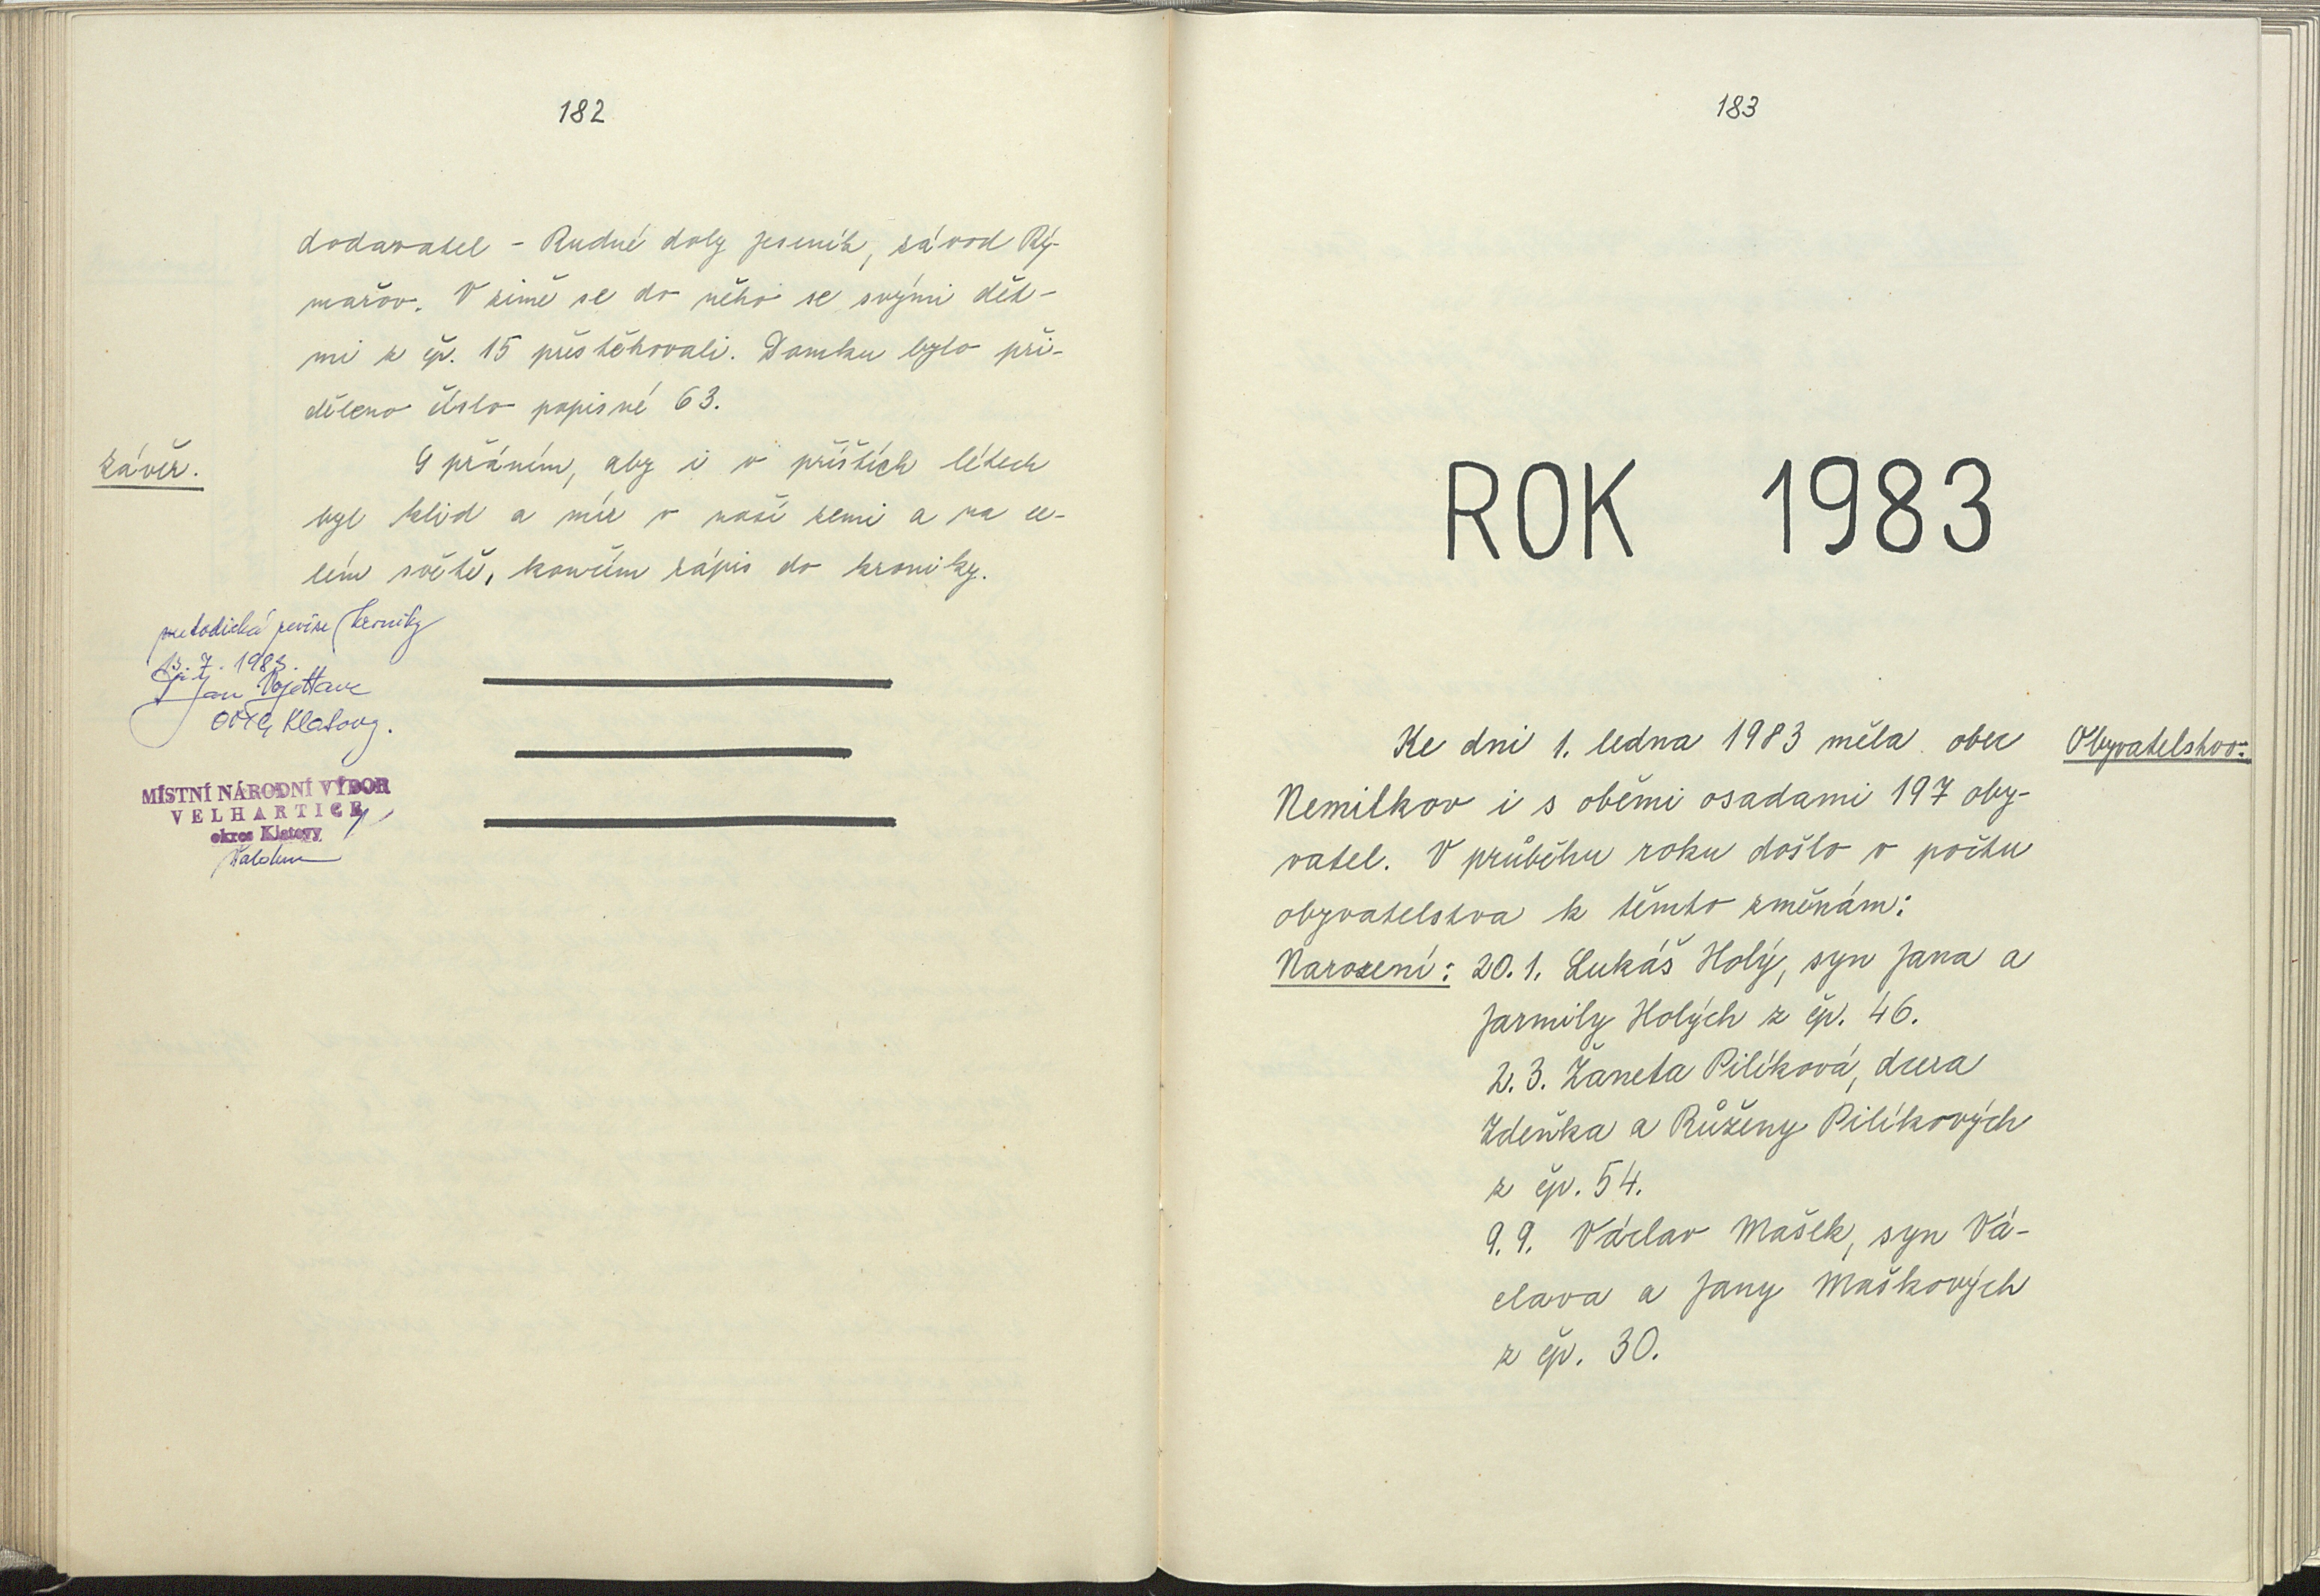 182
dodavatel - Rudné doly Jeseník, závod Rý-
mařov. V zimě se do něho se svými dět-
mi z čp. 15 přestěhovali. Domku bylo při-
děleno číslo popisné 63.
Závěr.
S přáním, aby i v příštích létech
byl klid a mír v naší zemi a na ce-
lém světě, končím zápis do kroniky.
metodická revize kroniky
7. 1983.
Jan
Klatovy.
MÍSTNÍ NÁRODNÍ VÝBOR
VELHARTICE
okres Klatovy
183
ROK 1983
Obyvatelstvo:
Ke dni 1. ledna 1983 měla obec
Nemilkov i s oběmi osadami 197 oby-
vatel. V průběhu roku došlo v počtu
obyvatelstva k těmto změnám:
Narození: 20. 1. Lukáš Holý, syn Jana a
Jarmily Holých z čp. 46.
2. 3. Žaneta Pilíková, dcera
Zdeňka a Růženy Pilíkových
z čp. 54.
9. 9. Václav Mašek, syn Vá-
clava a Jany Maškových
z čp. 30.